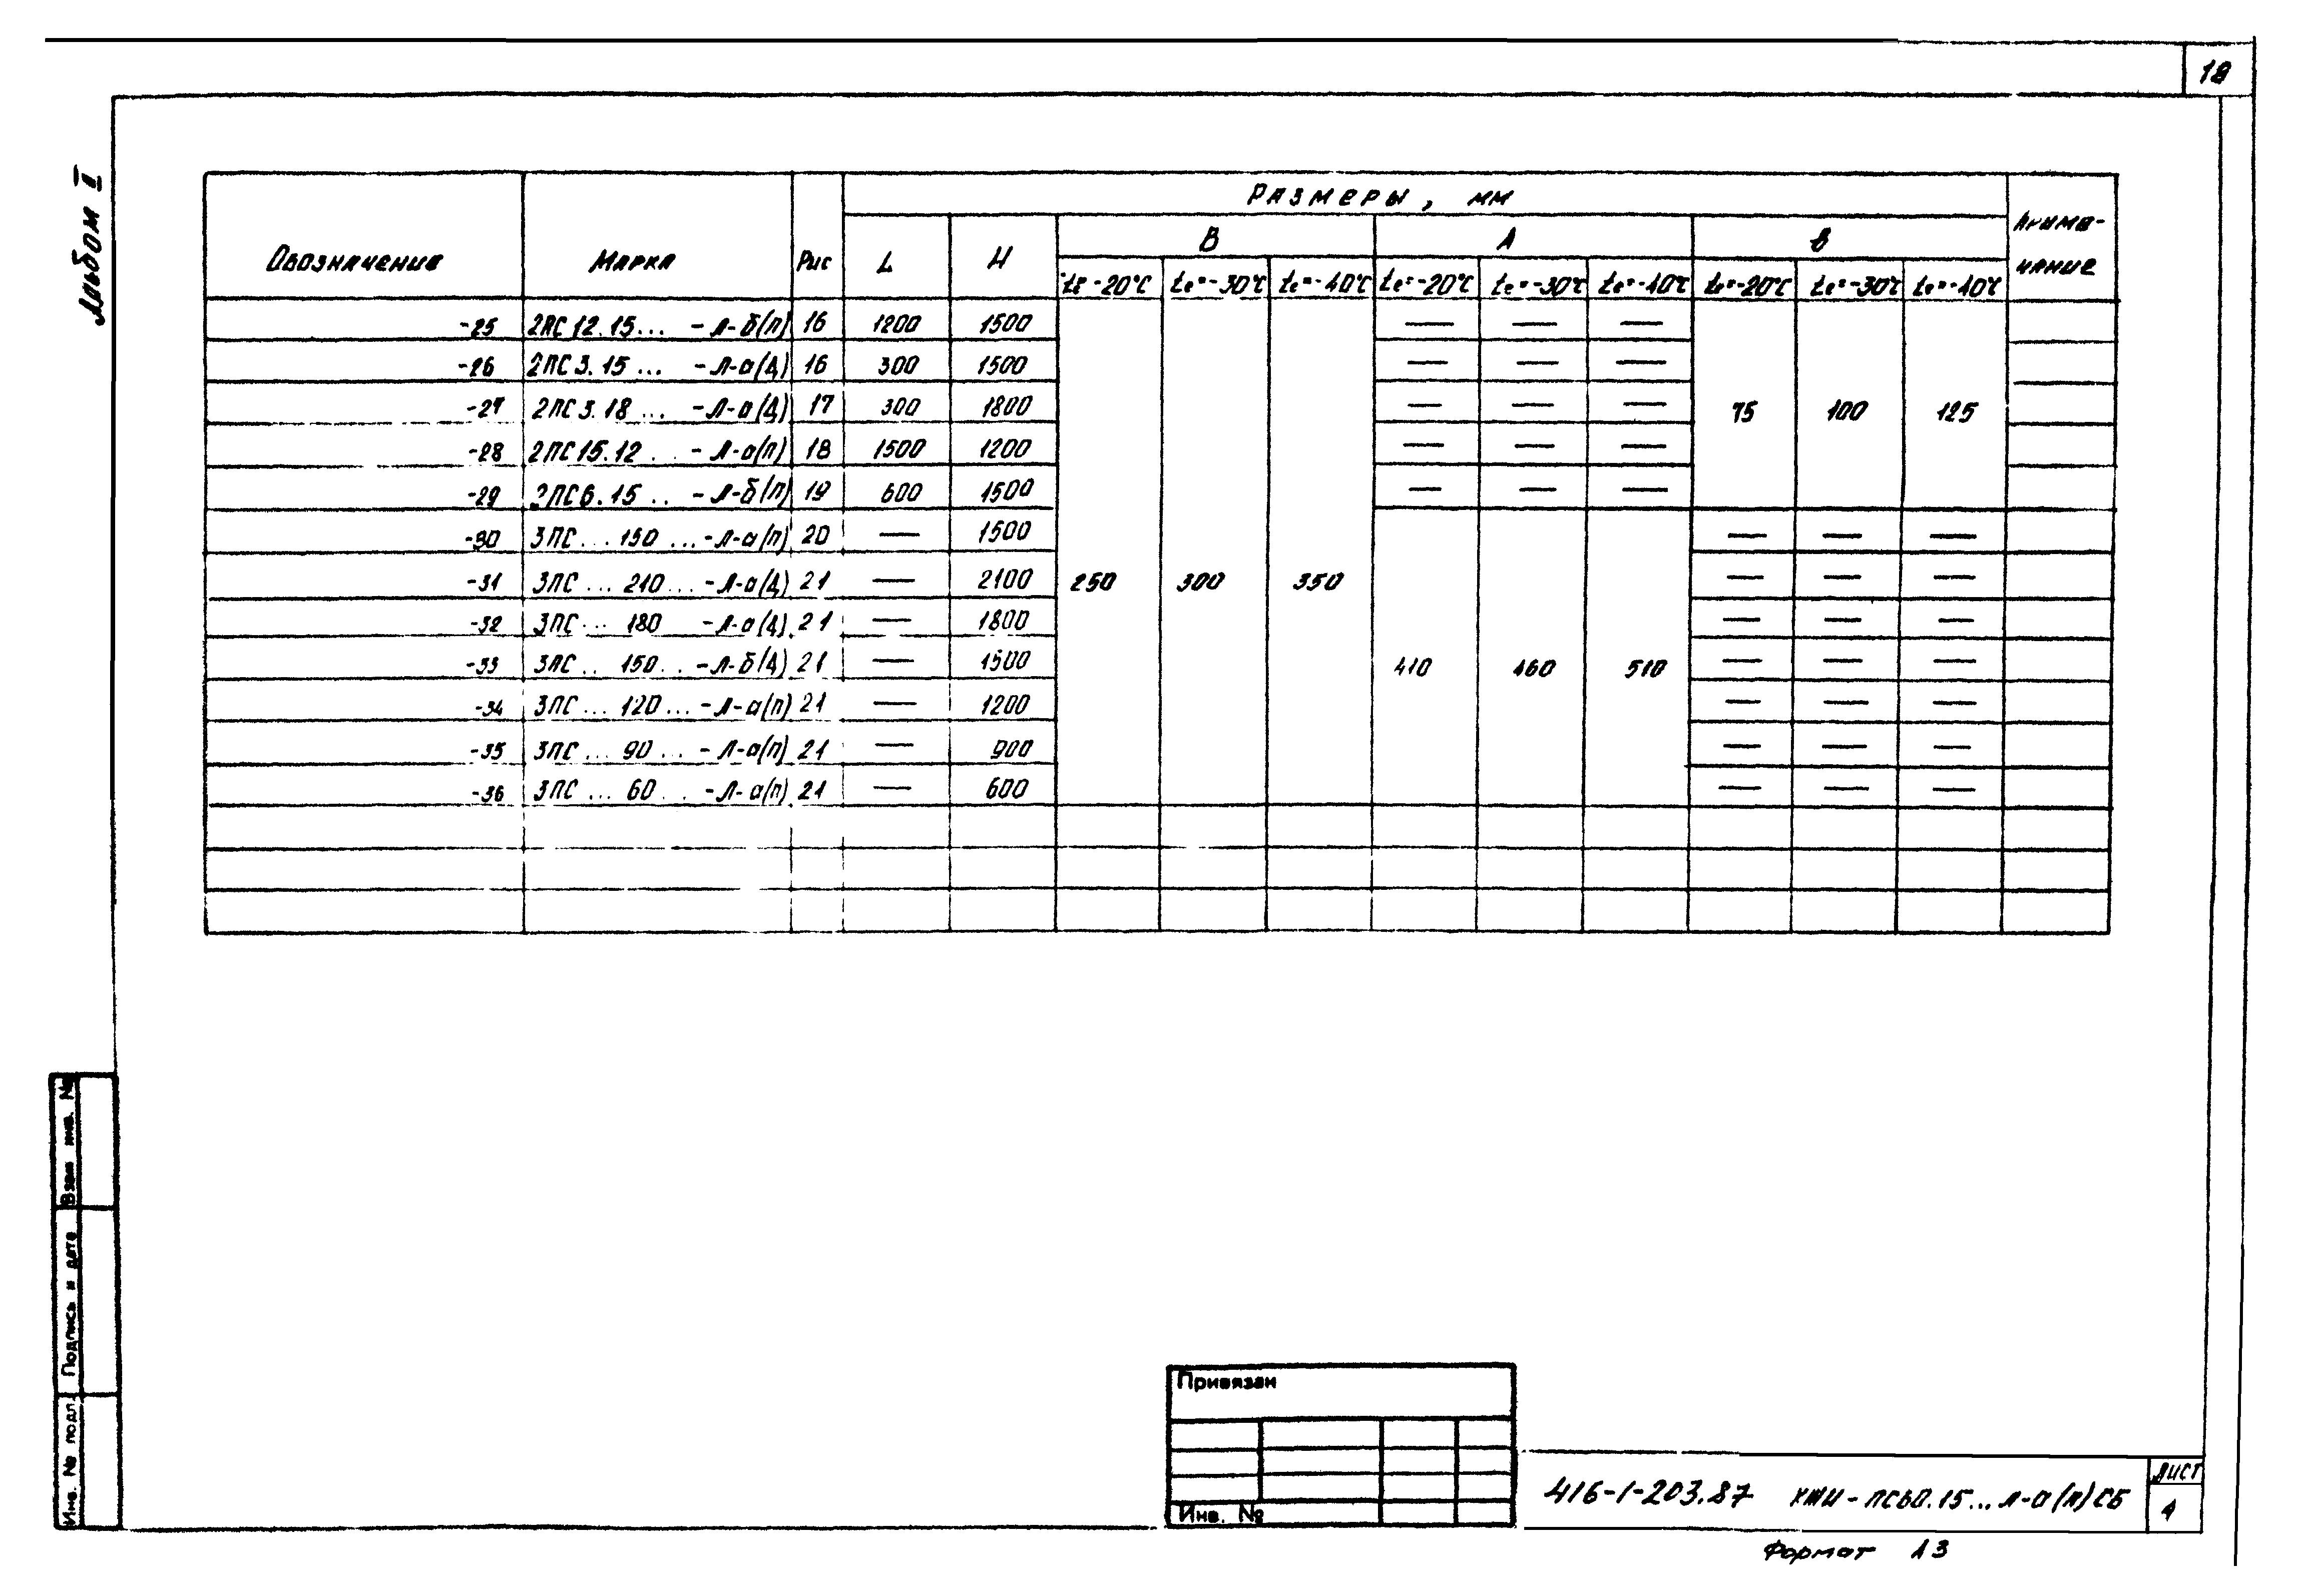 18
Альбом I
Обозначение Марка Рис Размеры, мм Приме-
чание
L H В А в
te=-20°С te=-30°С te=-40°С te=-20°С te=-30°С te=-40°С te=-20°С te=-30°С te=-40°С
-25 2ПС12.15... -Л-б(п) 16 1200 1500 — — —
-26 2ПС3.15... -Л-а(Д) 16 300 1500 — — —
-27 2ПС3.18... -Л-а(Д) 17 300 1800 — — — 75 100 125
-28 2ПС15.12... -Л-а(п) 18 1500 1200 — — —
-29 2ПС6.15.. -Л-б(п) 19 600 1500 — — —
-30 3ПС...150...-Л-а(п) 20 — 1500 — — —
-31 3ПС...210...-Л-а(Д) 21 — 2100 250 300 350 — — —
-32 3ПС... 180 -Л-а(Д) 21 — 1800 — — —
-33 3ПС..150..-Л-б(Д) 21 — 1500 410 460 510 — — —
-34 3ПС...120...-Л-а(п) 21 — 1200 — — —
-35 3ПС... 90...-Л-а(п) 21 — 900 — — —
-36 3ПС... 60...-Л-а(п) 21 — 600 — — —
Взам инв. №
Подпись и дата
Инв. № подл.
Привязан
Инв. №
416-1-203.87 КЖИ-ПС60.15...Л-а(п)СБ
Лист
4
Формат А3